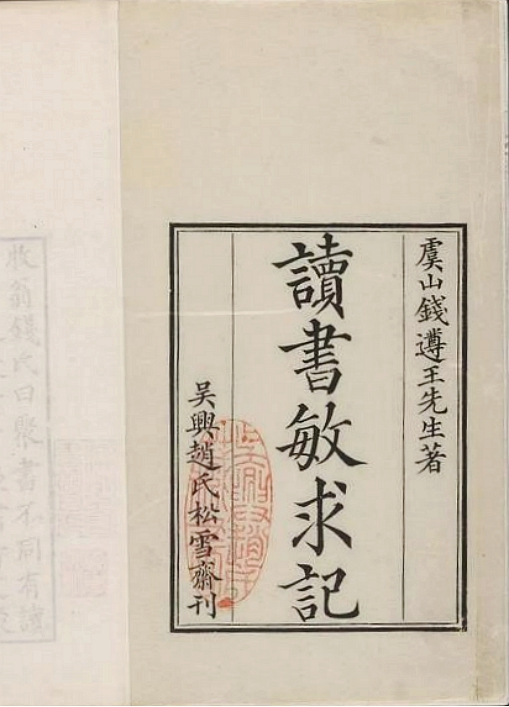 虞山錢遵王先生著
讀書敏求記
吴興趙氏松雪齋刊
牧翁錢氏曰聚書不同有讀